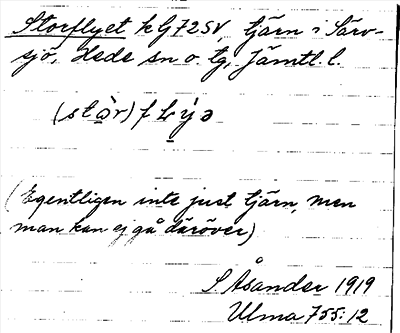 Storflyet k G 725V, tjärn i Särv-
sjö, Hede sn o. tg, Jämtl. l.
(stàr) f L ýə
(Egentligen inte just tjärn, men
man kan ej gå däröver)
S Åsander 1919
Ulma 755:12